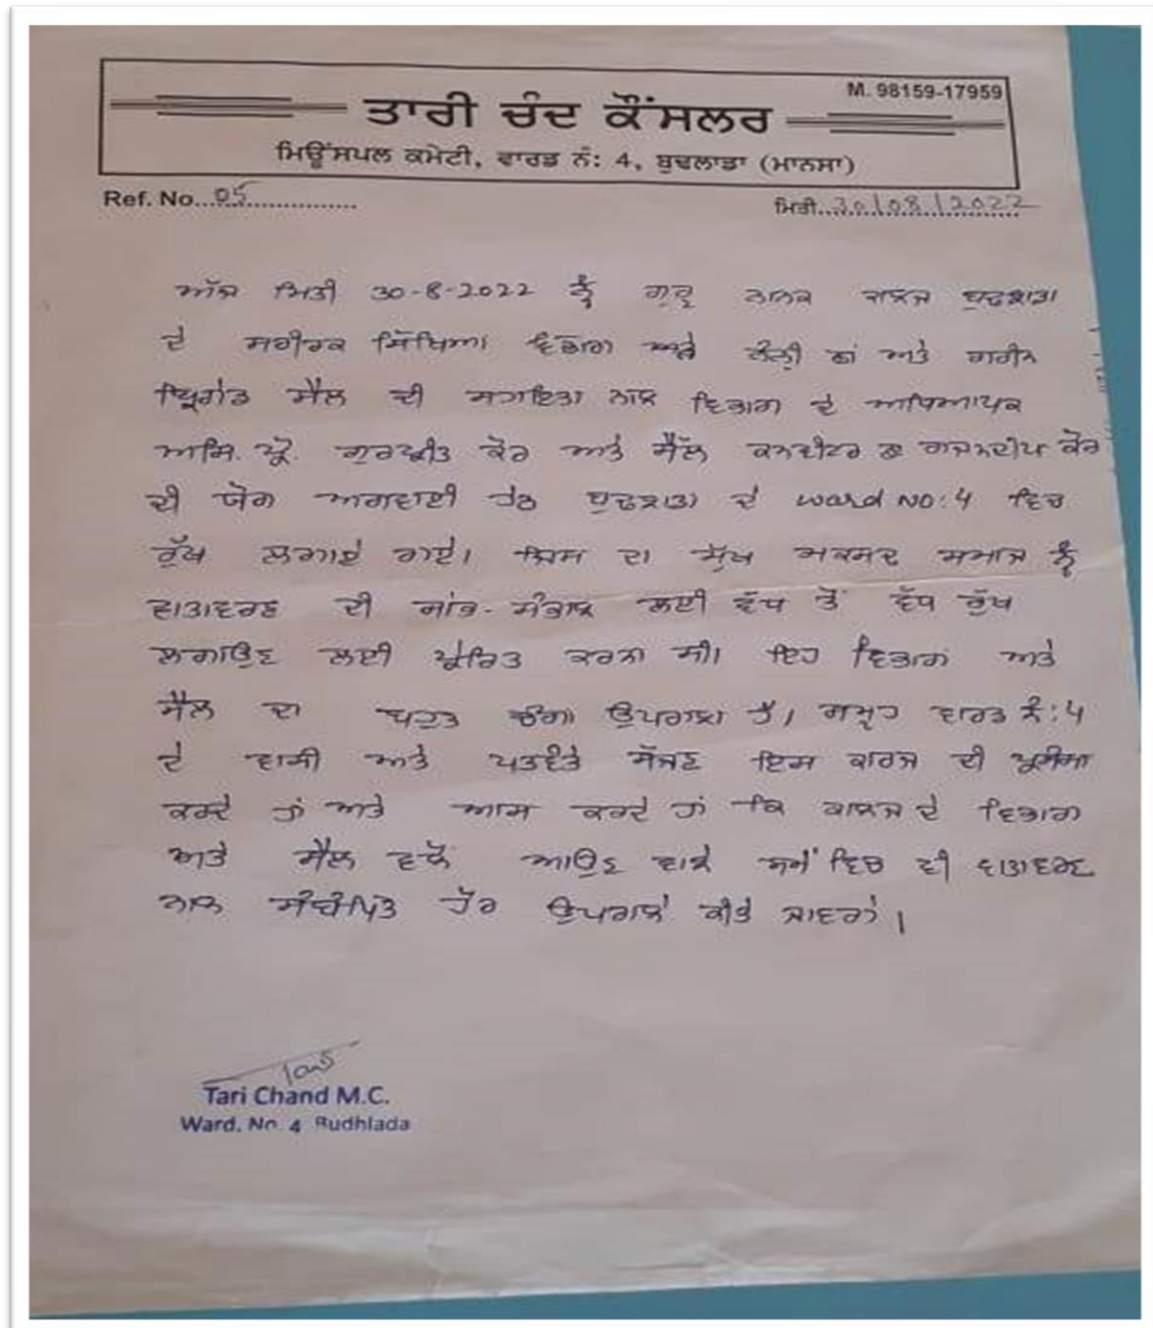 M. 98159-17959
ਤਾਰੀ ਚੰਦ ਕੌਂਸਲਰ
ਮਿਊਂਸਪਲ ਕਮੇਟੀ, ਵਾਰਡ ਨੰ: 4, ਬੁਢਲਾਡਾ (ਮਾਨਸਾ)
Ref. No...05................
ਮਿਤੀ..30/08/2022
ਅੱਜ ਮਿਤੀ 30-8-2022 ਨੂੰ ਗੁਰੂ ਨਾਨਕ ਕਾਲਜ ਬੁਢਲਾਡਾ
ਦੇ ਸਰੀਰਕ ਸਿੱਖਿਆ ਵਿਭਾਗ ਅਤੇ ਅਤੇ ਗਰੀਨ
ਬ੍ਰਿਗੇਡ ਸੈੱਲ ਦੀ ਸਹਾਇਤਾ ਨਾਲ ਵਿਭਾਗ ਦੇ ਅਧਿਆਪਕ
ਅਸਿ. ਪ੍ਰੋ. ਗੁਰਪ੍ਰੀਤ ਕੌਰ ਅਤੇ ਸੈੱਲ ਕਨਵੀਨਰ ਡਾ ਗਗਨਦੀਪ ਕੌਰ
ਦੀ ਯੋਗ ਅਗਵਾਈ ਹੇਠ ਬੁਢਲਾਡਾ ਦੇ ward NO: 4 ਵਿਚ
ਰੁੱਖ ਲਗਾਏ ਗਏ। ਜਿਸ ਦਾ ਮੁੱਖ ਮਕਸਦ ਸਮਾਜ ਨੂੰ
ਵਾਤਾਵਰਣ ਦੀ ਸਾਂਭ-ਸੰਭਾਲ ਲਈ ਵੱਧ ਤੋਂ ਵੱਧ ਰੁੱਖ
ਲਗਾਉਣ ਲਈ ਪ੍ਰੇਰਿਤ ਕਰਨਾ ਸੀ। ਇਹ ਵਿਭਾਗ ਅਤੇ
ਸੈੱਲ ਦਾ ਬਹੁਤ ਚੰਗਾ ਉਪਰਾਲਾ ਹੈ। ਸਮੂਹ ਵਾਰਡ ਨੰ: 4
ਦੇ ਵਾਸੀ ਅਤੇ ਪਤਵੰਤੇ ਸੱਜਣ ਇਸ ਕਾਰਜ ਦੀ ਪ੍ਰਸੰਸਾ
ਕਰਦੇ ਹਾਂ ਅਤੇ ਆਸ ਕਰਦੇ ਹਾਂ ਕਿ ਕਾਲਜ ਦੇ ਵਿਭਾਗ
ਅਤੇ ਸੈੱਲ ਵਲੋਂ ਆਉਣ ਵਾਲੇ ਸਮੇਂ ਵਿਚ ਵੀ ਵਾਤਾਵਰਣ
ਨਾਲ ਸੰਬੰਧਿਤ ਹੋਰ ਉਪਰਾਲੇ ਕੀਤੇ ਜਾਣਗੇ।
Tari Chand M.C.
Ward. No. 4 Budhlada